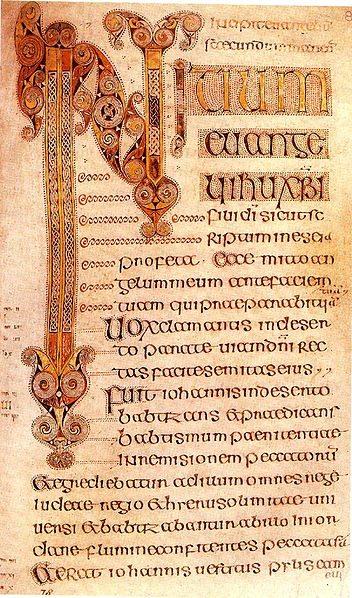 INITIUM
EUANGE
LII IHU XPI
fili di sicut sc
riptum in eseia
profeta Ecce mitto an
gelum meum ante faciem
tuam qui praeparabit uia
tuam
Uox clamantis in deser
to parate uiam dni rec
tas facite semitas eius
Fuit iohannis in deserto
babtizans & praedicans
babtismum paenitentiae
in remisionem peccatorum
& egrediebatur ad illum omnes
iudeae regio & hierusolimitae uni
uersi & babtizabantur ab illo in ior
dane flumine confitentes peccata sua
& erat iohannis uestitus pylis cam